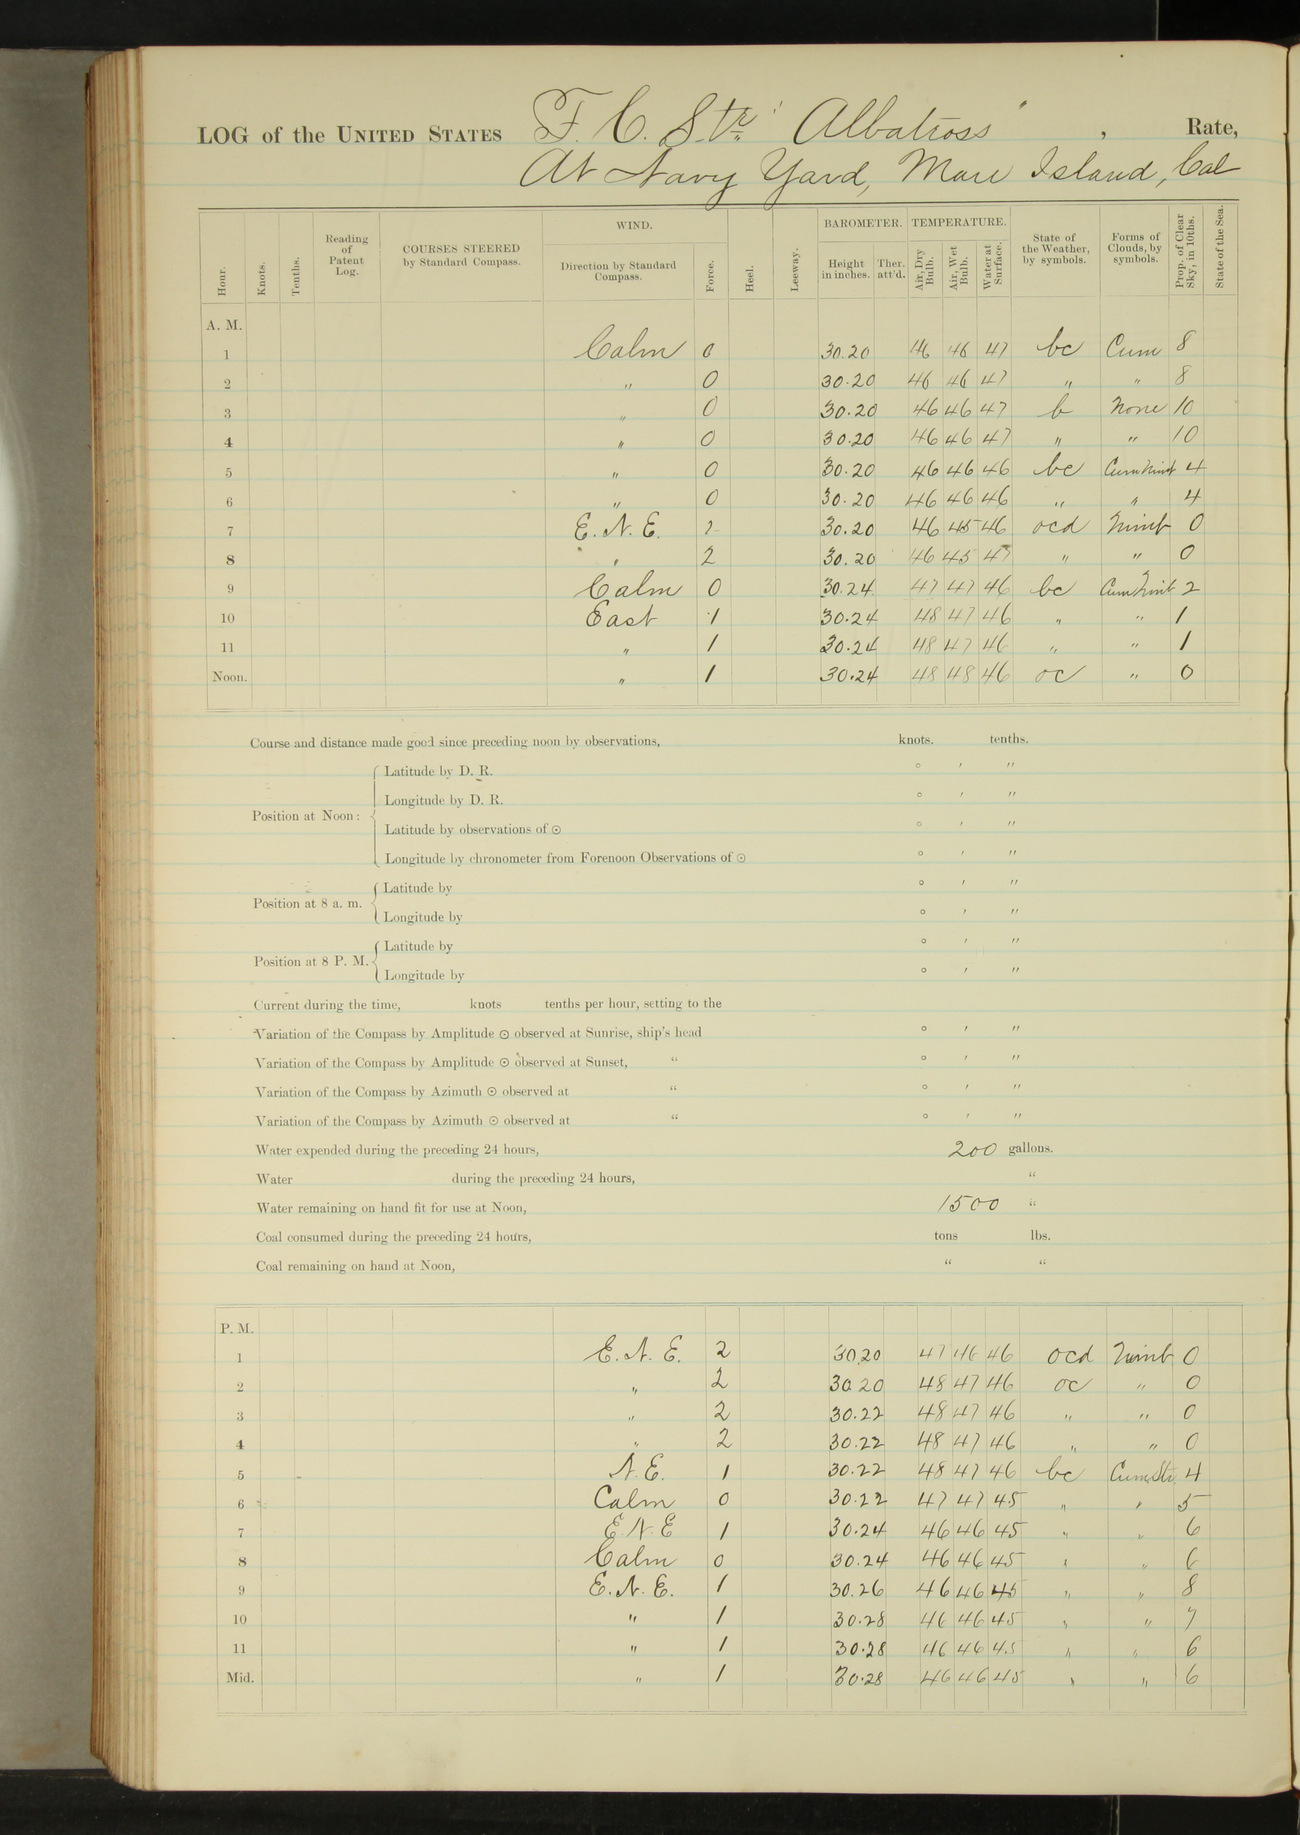 LOG of the UNITED STATES F. C. Str. "Albatross" , Rate,
At Navy Yard, Mare Island, Cal
Hour. Knots. Tenths. Reading of Patent Log. COURSES STEERED by Standard Compass. WIND. Direction by Standard Compass. Force. Heel. Leeway. BAROMETER. Height in inches. Ther. att'd. TEMPERATURE. Air, Dry Bulb. Air, Wet Bulb. Water at Surface. State of the Weather, by symbols. Forms of Clouds, by symbols. Prop. of Clear Sky, in 10ths. State of the Sea.
A. M.
1 Calm 0 30.20 46 46 47 bc Cum 8
2 " 0 30.20 46 46 47 " " 8
3 " 0 30.20 46 46 47 b None 10
4 " 0 30.20 46 46 47 " " 10
5 " 0 30.20 46 46 46 bc Cum Nimb 4
6 " 0 30.20 46 46 46 " " 4
7 E.N.E. 2 30.20 46 45 46 ocd Nimb 0
8 " 2 30.20 46 45 47 " " 0
9 Calm 0 30.24 47 47 46 bc Cum Nimb 2
10 East 1 30.24 48 47 46 " " 1
11 " 1 30.24 48 47 46 " " 1
Noon. " 1 30.24 48 48 46 oc " 0
Course and distance made good since preceding noon by observations, knots. tenths.
Position at Noon: Latitude by D. R. ° ' "
Longitude by D. R. ° ' "
Latitude by observations of ☉ ° ' "
Longitude by chronometer from Forenoon Observations of ☉ ° ' "
Position at 8 a. m. Latitude by ° ' "
Longitude by ° ' "
Position at 8 P. M. Latitude by ° ' "
Longitude by ° ' "
Current during the time, knots tenths per hour, setting to the
Variation of the Compass by Amplitude ☉ observed at Sunrise, ship's head ° ' "
Variation of the Compass by Amplitude ☉ observed at Sunset, " ° ' "
Variation of the Compass by Azimuth ☉ observed at " ° ' "
Variation of the Compass by Azimuth ☉ observed at " ° ' "
Water expended during the preceding 24 hours, 200 gallons.
Water during the preceding 24 hours, "
Water remaining on hand fit for use at Noon, 1500 "
Coal consumed during the preceding 24 hours, tons lbs.
Coal remaining on hand at Noon, " "
P. M.
1 E.N.E. 2 30.20 47 46 46 ocd Nimb 0
2 " 2 30.20 48 47 46 oc " 0
3 " 2 30.22 48 47 46 " " 0
4 " 2 30.22 48 47 46 " " 0
5 N.E. 1 30.22 48 47 46 bc Cum. Str. 4
6 Calm 0 30.22 47 47 45 " " 5
7 E.N.E 1 30.24 46 46 45 " " 6
8 Calm 0 30.24 46 46 45 " " 6
9 E.N.E. 1 30.26 46 46 45 " " 8
10 " 1 30.28 46 46 45 " " 7
11 " 1 30.28 46 46 45 " " 6
Mid. " 1 30.28 46 46 45 " " 6